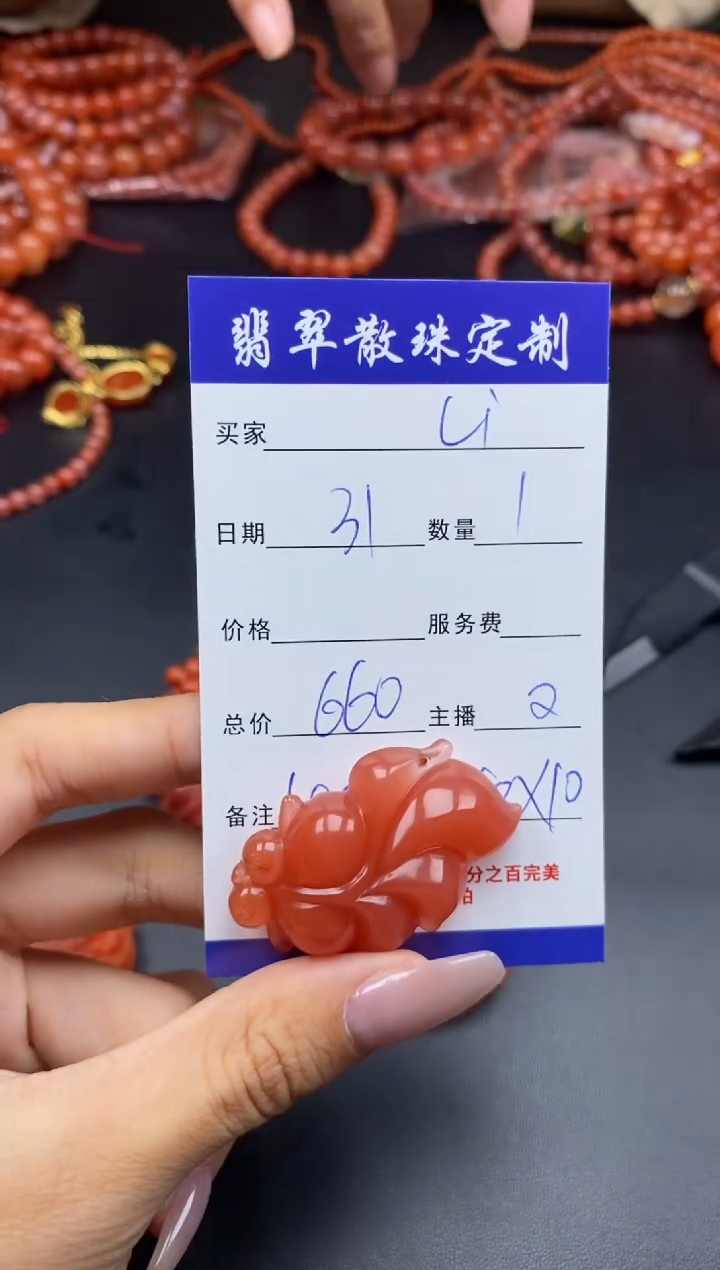 翡翠散珠定制
买家 Li
日期 31 数量 1
价格 服务费
总价 660 主播 2
备注 X10
分之百完美